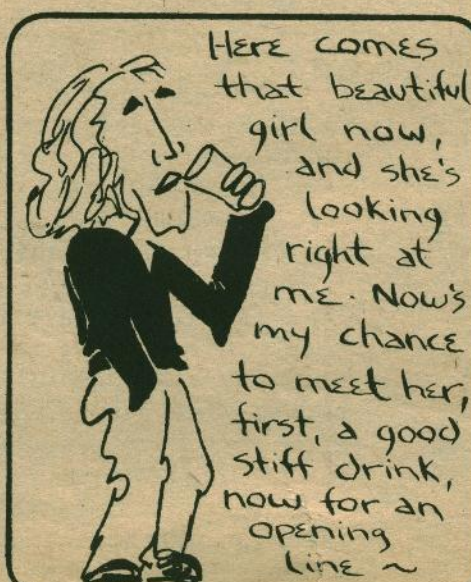 Here comes
that beautiful
girl now,
and she's
looking
right at
me. Now's
my chance
to meet her,
first, a good
stiff drink,
now for an
opening
line ~